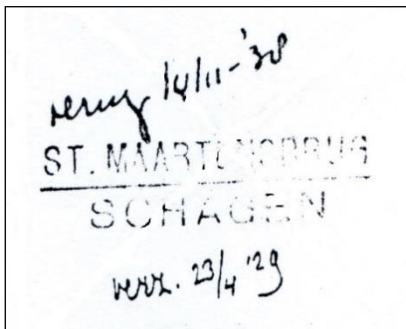 terug 14/11-'38
ST. MAARTENSBRUG
SCHAGEN
verz. 23/4 '29